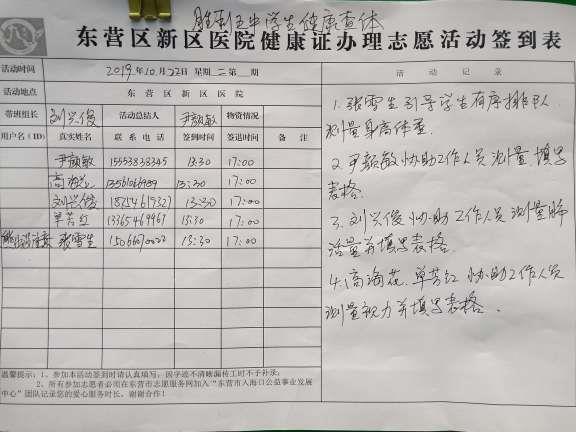 胜利五中学生健康查体
东营区新区医院健康证办理志愿活动签到表
活动时间 2019年10月22日 星期二 第 期
活动记录
活动地点 东营区新区医院
带班组长 刘兴俊 活动总结人 尹颜敏 物资情况
用户名(ID) 真实姓名 联系电话 签到时间 签退时间 备注
尹颜敏 15553838345 13:30 17:00
13:30 17:00
刘兴俊 18254619327 13:30 17:00
单芳红 13365469967 13:30 17:00
张雪生 13:30 17:00
1.张雪生引导学生有序排队
测量身高体重.
2.尹颜敏协助工作人员测量填写
表格.
3.刘兴俊协助工作人员测量肺
活量并填写表格.
4.高海花.单芳红协助工作人员
测量视力并填写表格.
温馨提示:1、参加本活动签到时请认真填写,因字迹不清晰漏传工时不予补录;
2、所有参加志愿者必须在东营市志愿服务网加入“东营市入海口公益事业发展
中心”团队记录您的爱心服务时长,谢谢合作!